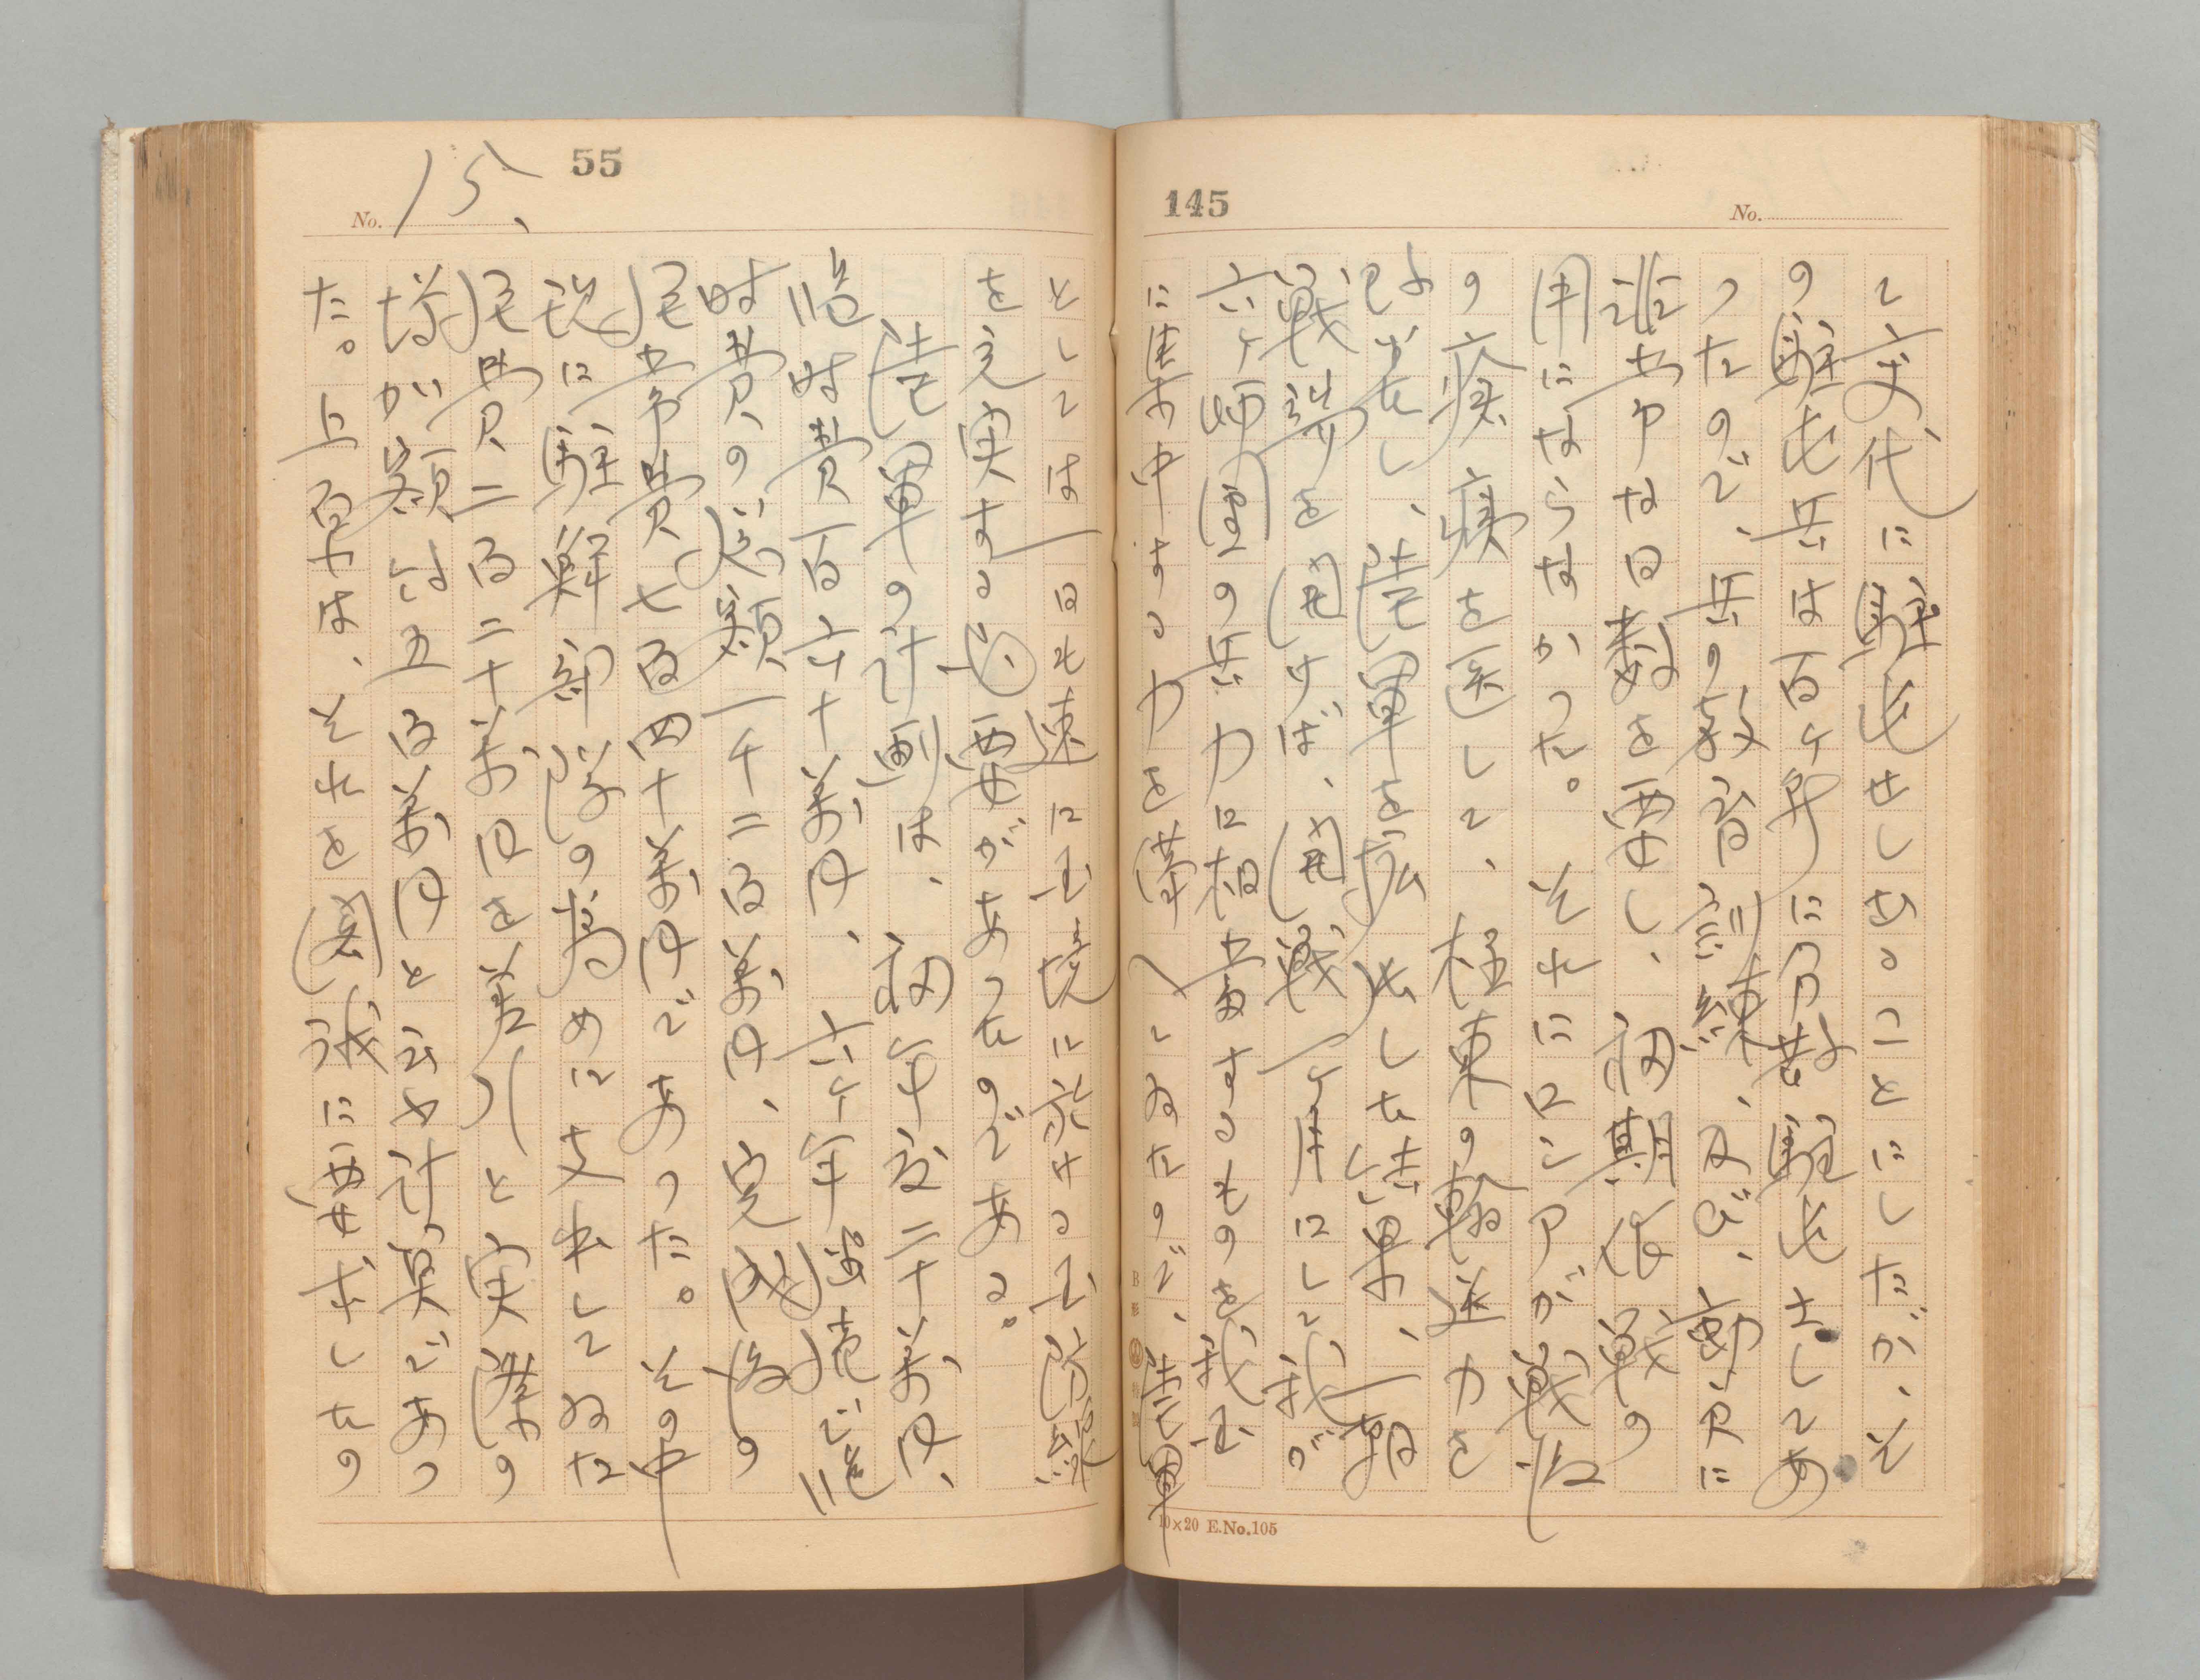 145
No.
て交代に駐屯せしめることにしだが、そ
の駐屯兵は百ヶ所に分散駐屯さしてあ
つたので、兵の教育訓練、及び、動員に
非常な日数を要し、初期作戦の
用にならなかつた。それにロシアが戦後
の疲痍を医して、極東の輸送力を
し、陸軍を拡張した結果、一朝
戦端を開けば、開戦一ヶ月にして我が
六ヶ師団の兵力に相当するものを我国
に集中する力を備へてゐたので、陸軍
10×20 E.No.105
55
No. 15、
としては一日も速に国境に於ける国防線
を充実する必要があつたのである。
陸軍の計画は、初年度二十萬円、
臨時費百六十萬円、六ヶ年継続で臨
時費の総額一千二百萬円、完成後の
経常費七百四十萬円であつた。その中
現に駐鮮部隊の為めに支出してゐた
経費二百二十萬円を差引くと実際の
増加額は五百萬円と云ふ計算であつ
た。上原は、それを閣議に要求したの